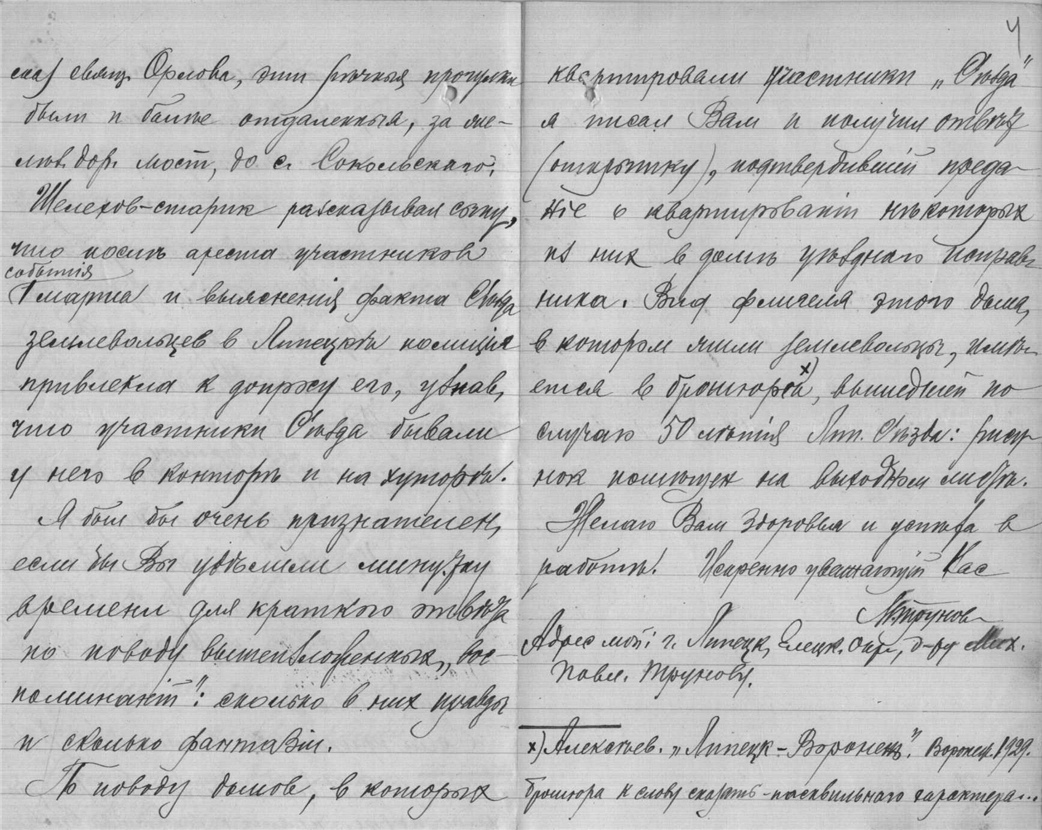 сад свящ. Орлова, эти речныя прогулки
были и болѣе отдаленныя, за же-
лѣз. дор. мост, до с. Сокольскаго.
Шелехов-старик разсказывал сыну,
что послѣ ареста участников
событія
1 марта и выясненія факта Съѣзда
землевольцев в Липецкѣ полиція
привлекла к допросу его, узнав,
что участники Съѣзда бывали
у него в конторѣ и на хуторѣ.
Я был бы очень признателен,
если бы Вы удѣлили минутку
времени для краткого отвѣта
по поводу вышеизложенных „вос
поминаній": сколько в них правды
и сколько фантазіи.
По поводу домов, в которых
4
квартировали участники „Съѣзда"
я писал Вам и получил отвѣт
(открытку), подтвердившій преда-
ніе о квартированіи нѣкоторых
из них в домѣ уѣзднаго исправ-
ника. Вид флигеля этого дома,
в котором жили землевольцы, имѣ-
ется в брошюрѣ х), вышедшей по
случаю 50 лѣтія Лип. Съѣзда: рису-
нок помѣщен на выходном листѣ.
Желаю Вам здоровья и успѣха в
работѣ! Искренно уважающій Вас
М. Трунов
Адрес мой: г. Липецк, Елецк. окр., д-ру Мих.
Павл. Трунову.
х) Алексѣев. „Липецк-Воронеж". Воронеж. 1929.
брошюра к слову сказать - пасквильнаго характера...